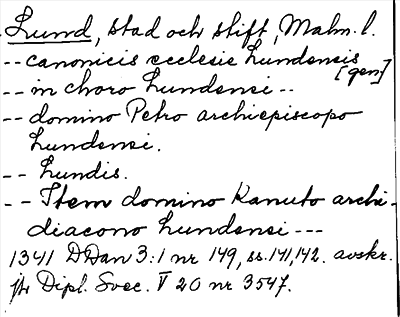 Lund, stad och stift, Malm. l.
-- canonicis ecclesie Lundensis
[gen]
-- in choro Lundensi --
-- domino Petro archiepiscopo
Lundensi.
-- Lundis.
-- Item domino Kanuto archi-
diacono Lundensi ---
1341 DDan 3:1 nr 149, ss. 141, 142. avskr.
jfr Dipl. Svec. V 20 nr 3547.